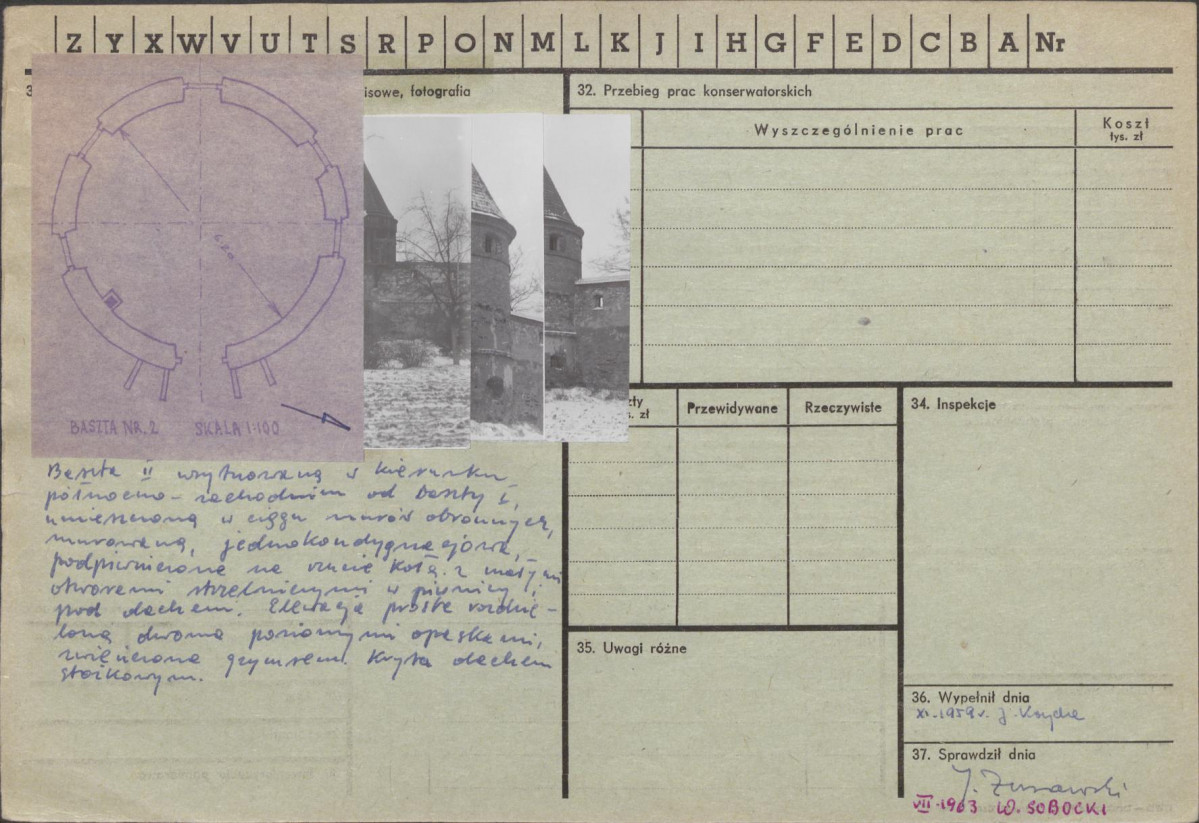 Z Y X W V U T S R P O N M L K J I H G F E D C B A Nr
3
isowe, fotografia
BASZTA NR. 2 SKALA 1:100
Baszta II usytuowana w kierunku
północno-zachodnim od baszty I,
umieszczona w ciągu murów obronnych,
murowana, jednokondygnacjowa,
podpiwniczona na rzucie koła z małymi
otworami strzelniczymi w piwnicy i
pod dachem. Elewacja prosta rozdzie-
lona dwoma poziomymi opaskami,
zwieńczona gzymsem. Kryta dachem
stożkowym.
32. Przebieg prac konserwatorskich
Wyszczególnienie prac
Koszt
tys. zł
zty
s. zł
Przewidywane
Rzeczywiste
34. Inspekcje
35. Uwagi różne
36. Wypełnił dnia
XI.1959 r. J.
37. Sprawdził dnia
J. Żurawski
VII-1963 W. SOBOCKI